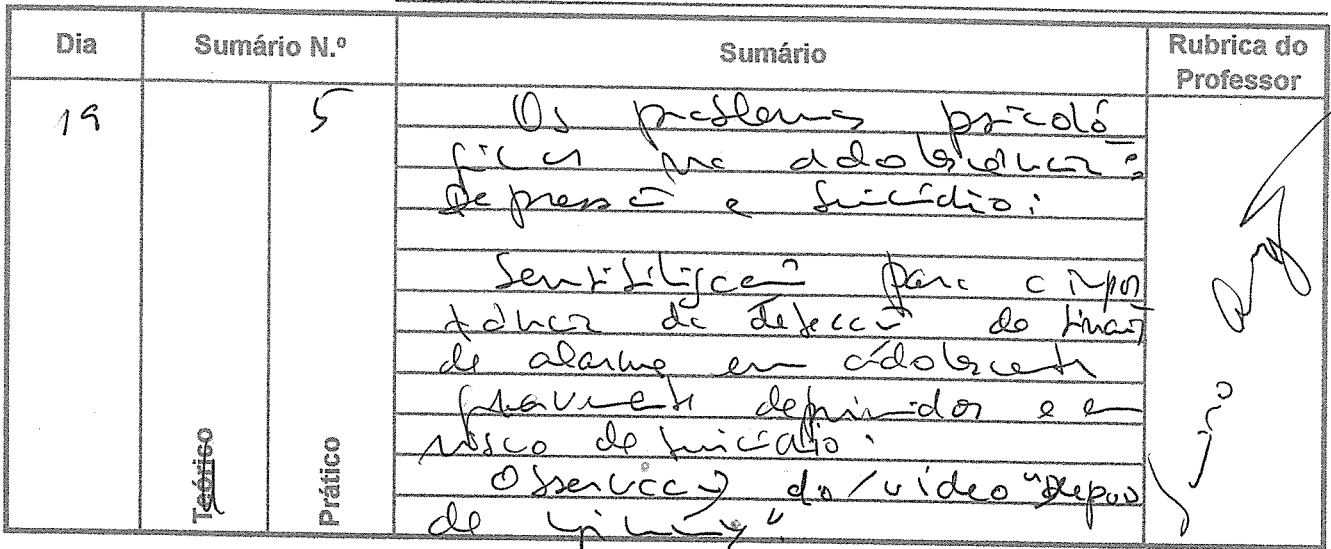 Dia Sumário N.º Sumário Rubrica do Professor
19 5 Os problemas psicoló
gicos na adolescência:
Depressão e Suicídio:
Sensibilização para a impor
tância da detecção de sinais
de alarme em adolescentes
gravemente deprimidos e em
risco de suicídio.
Observação do vídeo "Depois
de
Teórico
Prático